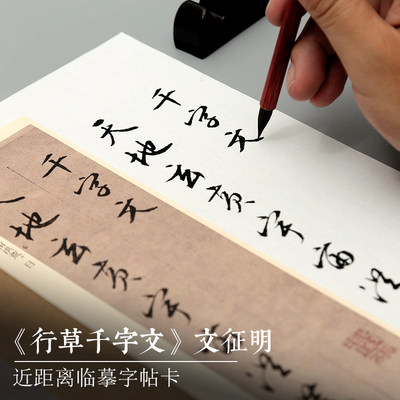 千字文
天地玄黄宇宙洪
千字文
天地玄黄宇宙洪
《行草千字文》文征明
近距离临摹字帖卡